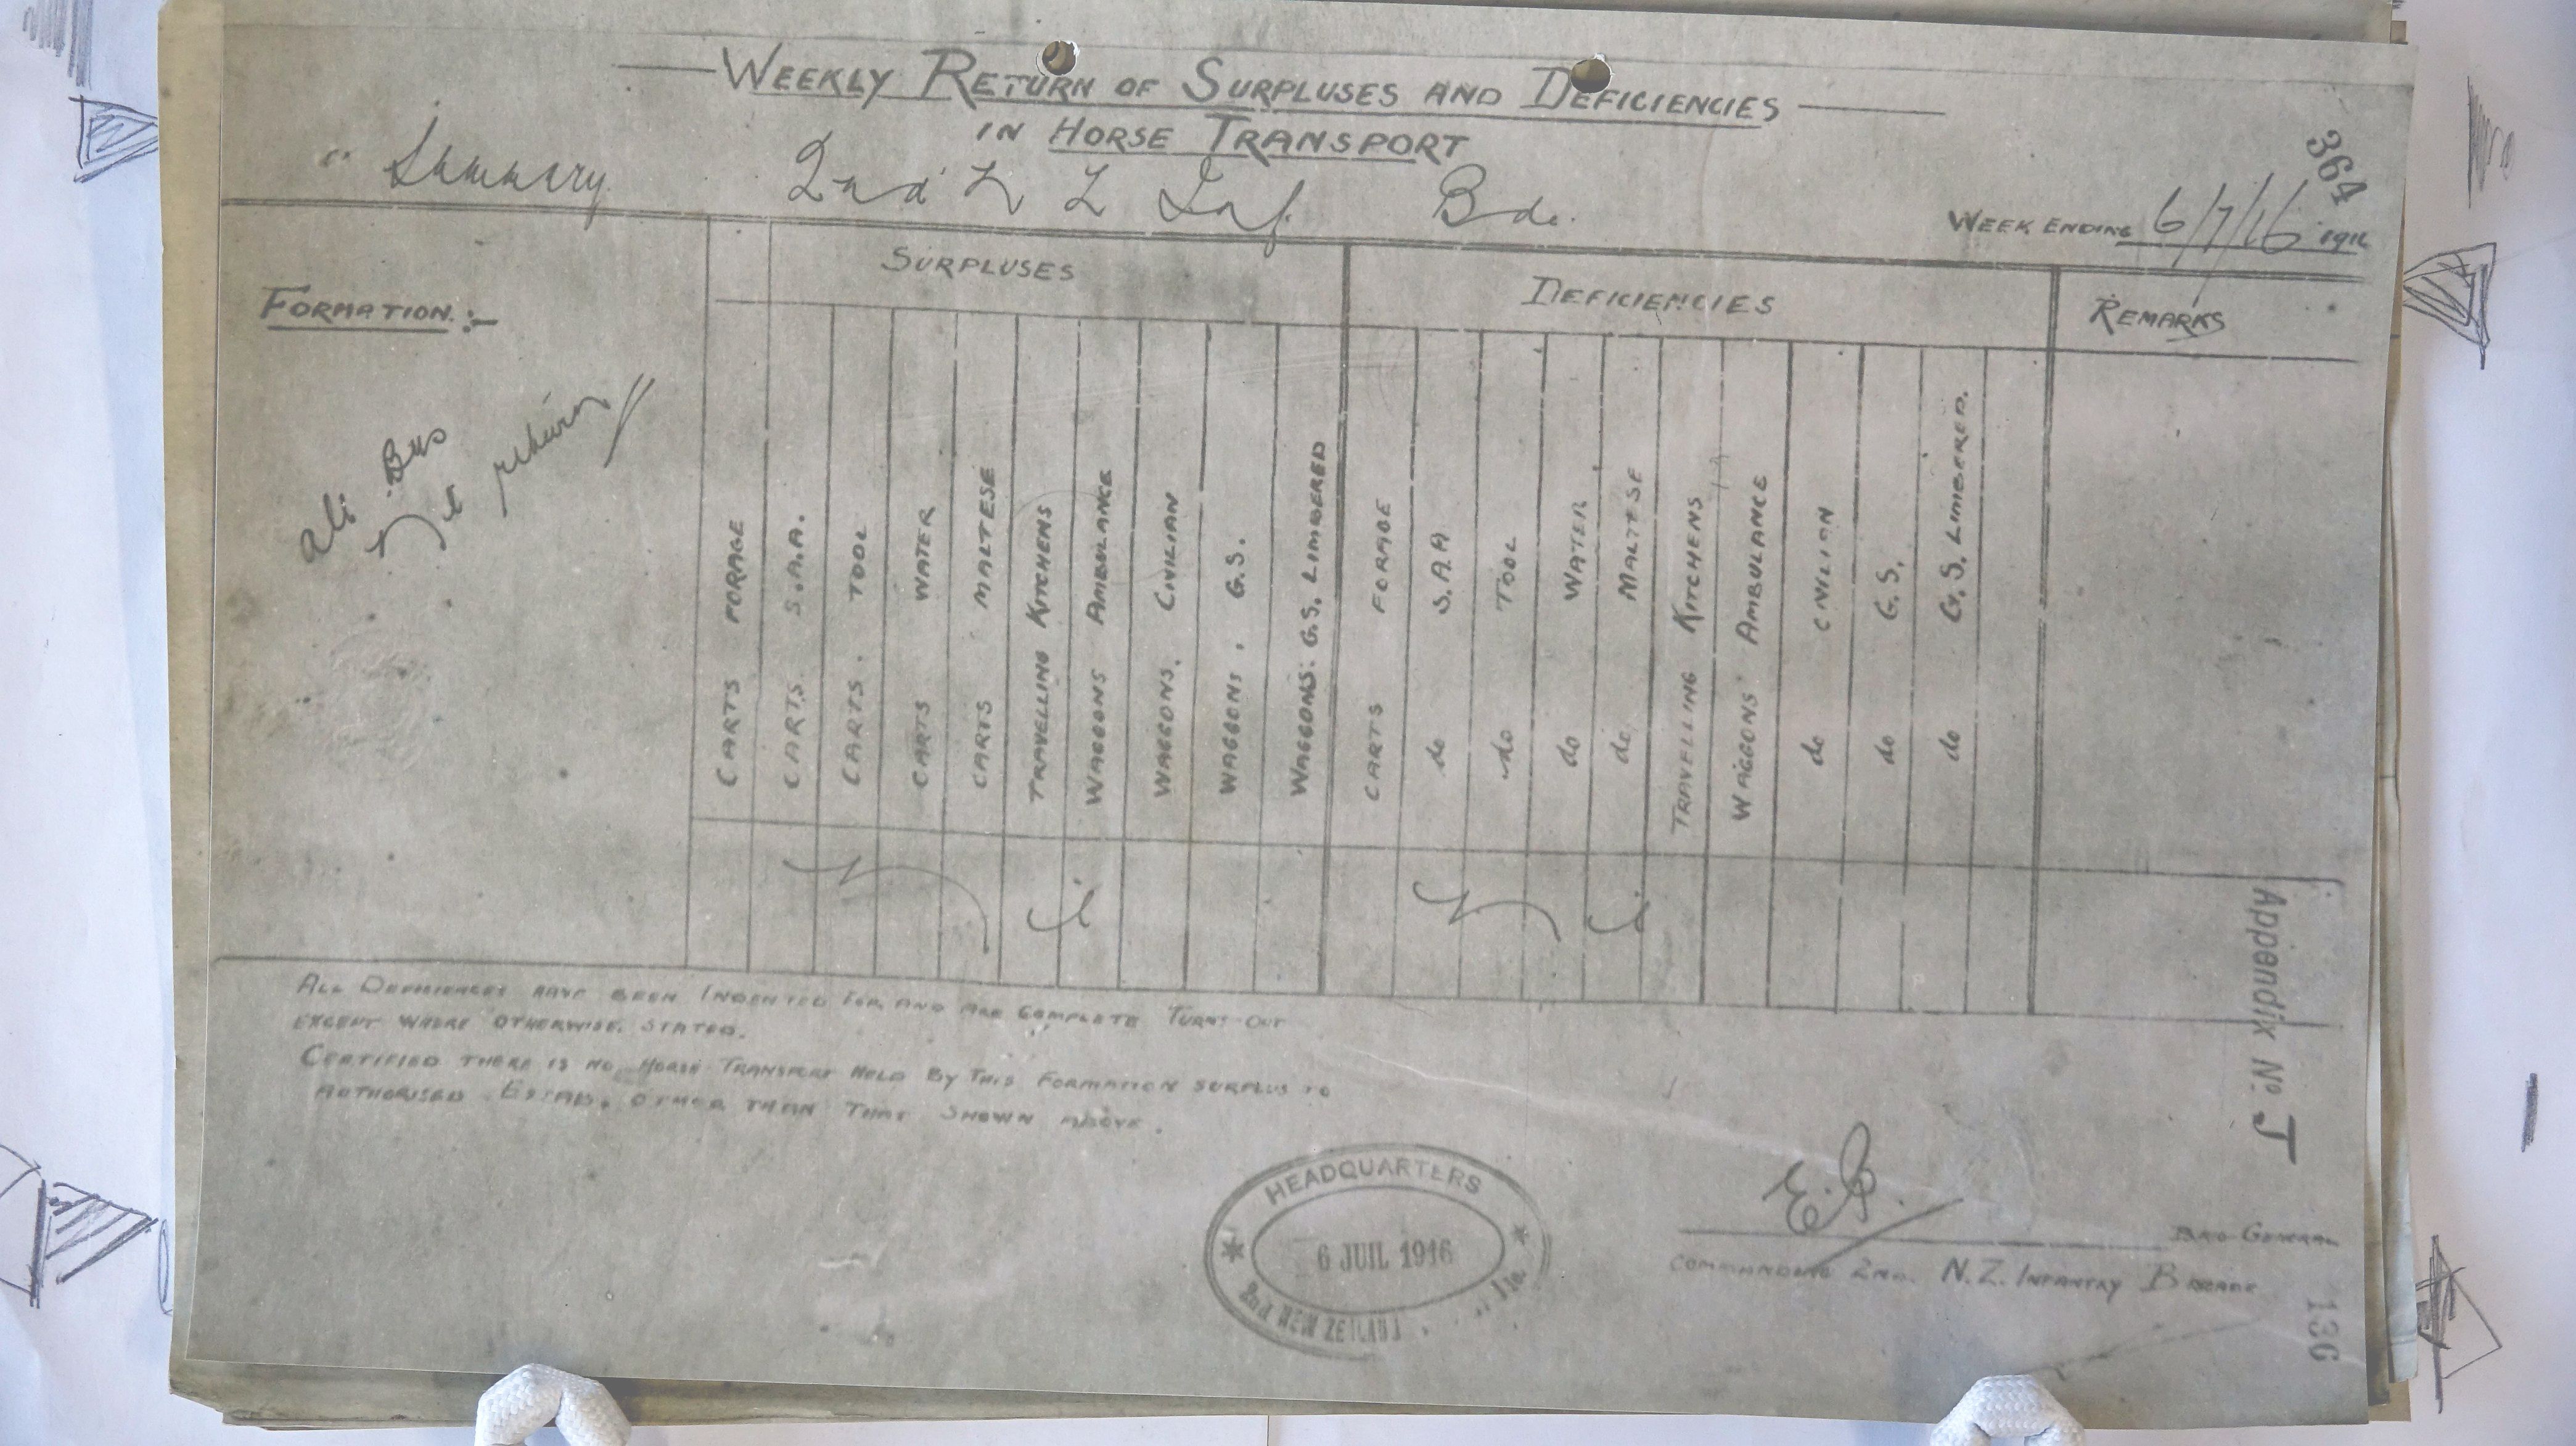 WEEKLY RETURN OF SURPLUSES AND DEFICIENCIES
IN HORSE TRANSPORT
Summary 2nd N Z Inf. Bde.
364
WEEK ENDING 6/7/16 191
FORMATION :-
SURPLUSES
DEFICIENCIES
REMARKS
All Bns
Nil return
CARTS FORAGE
CARTS. S.A.A.
CARTS. TOOL
CARTS WATER
CARTS MALTESE
TRAVELLING KITCHENS
WAGGONS AMBULANCE
WAGGONS. CIVILIAN
WAGGONS. G.S.
WAGGONS. G.S. LIMBERED
CARTS FORAGE
do S.A.A
do TOOL
do WATER
do MALTESE
TRAVELLING KITCHENS
WAGGONS AMBULANCE
do CIVILIAN
do G.S.
do G.S. LIMBERED.
Nil
Nil
ALL DEFICIENCES HAVE BEEN INDENTED FOR AND ARE COMPLETE TURNS OUT
EXCEPT WHERE OTHERWISE STATED.
CERTIFIED THERE IS NO HORSE TRANSPORT HELD BY THIS FORMATION SURPLUS TO
AUTHORISED ESTAB. OTHER THAN THAT SHOWN ABOVE.
Appendix No. J
HEADQUARTERS
6 JUIL 1916
2nd NEW ZEALAND
BRIG-GENERAL
COMMANDING 2ND. N.Z. INFANTRY BRIGADE
136